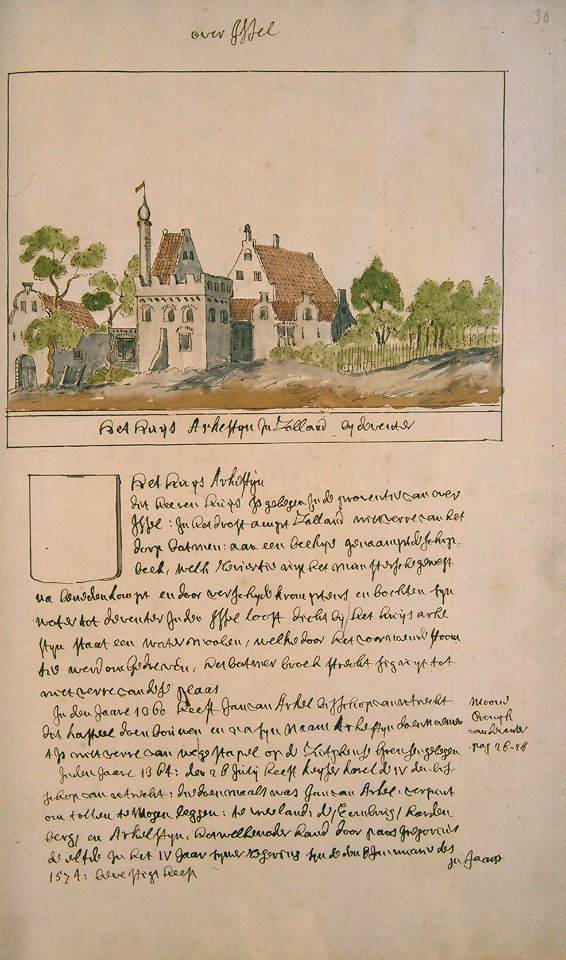 over Yssel
30
Het Huijs Arkesteijn In Zalland by deventer
Het Huijs Arkesteijn
dit Heeren Huijs Is gelegen In de provintie van over
Yssel: In het drost ampt Zalland niet verre van het
dorp batmen: aan een beekje genaampt de schip-
beek, welk Riviertie uijt het Munstersche gewest
na beneden kompt en door verscheijde krompten en bochten sijn
water tot deventer In den Yssel loost dicht bij het Huijs arke
steijn staat een water Moolen, welke door het voornoemde stroom
tie werd om Gedreven, Het batmer broek strekt sig uijt tot
niet verre van dese plaas
In den Jaare 1360 Heeft Jan van Arkel bisschop van utrecht
dit kasteel doen bouwen en na sijn Naam Arkesteijn doen Noemen
niet verre van wegestapel op de Zutphense Grensen gelegen
In den Jaare 1364: den 28 Julij Heeft keijser karel de IV den bis
schop van utrecht: die doenmaals was Jan van Arkel: vergunt
om tollen te Mogen leggen: te
berg, en Arkelsteijn, door paus Gregorius
de elfde In het IV Jaar sijner Regering den 8 Januarie des
1574: bevestigt Heeft
pag 26-28